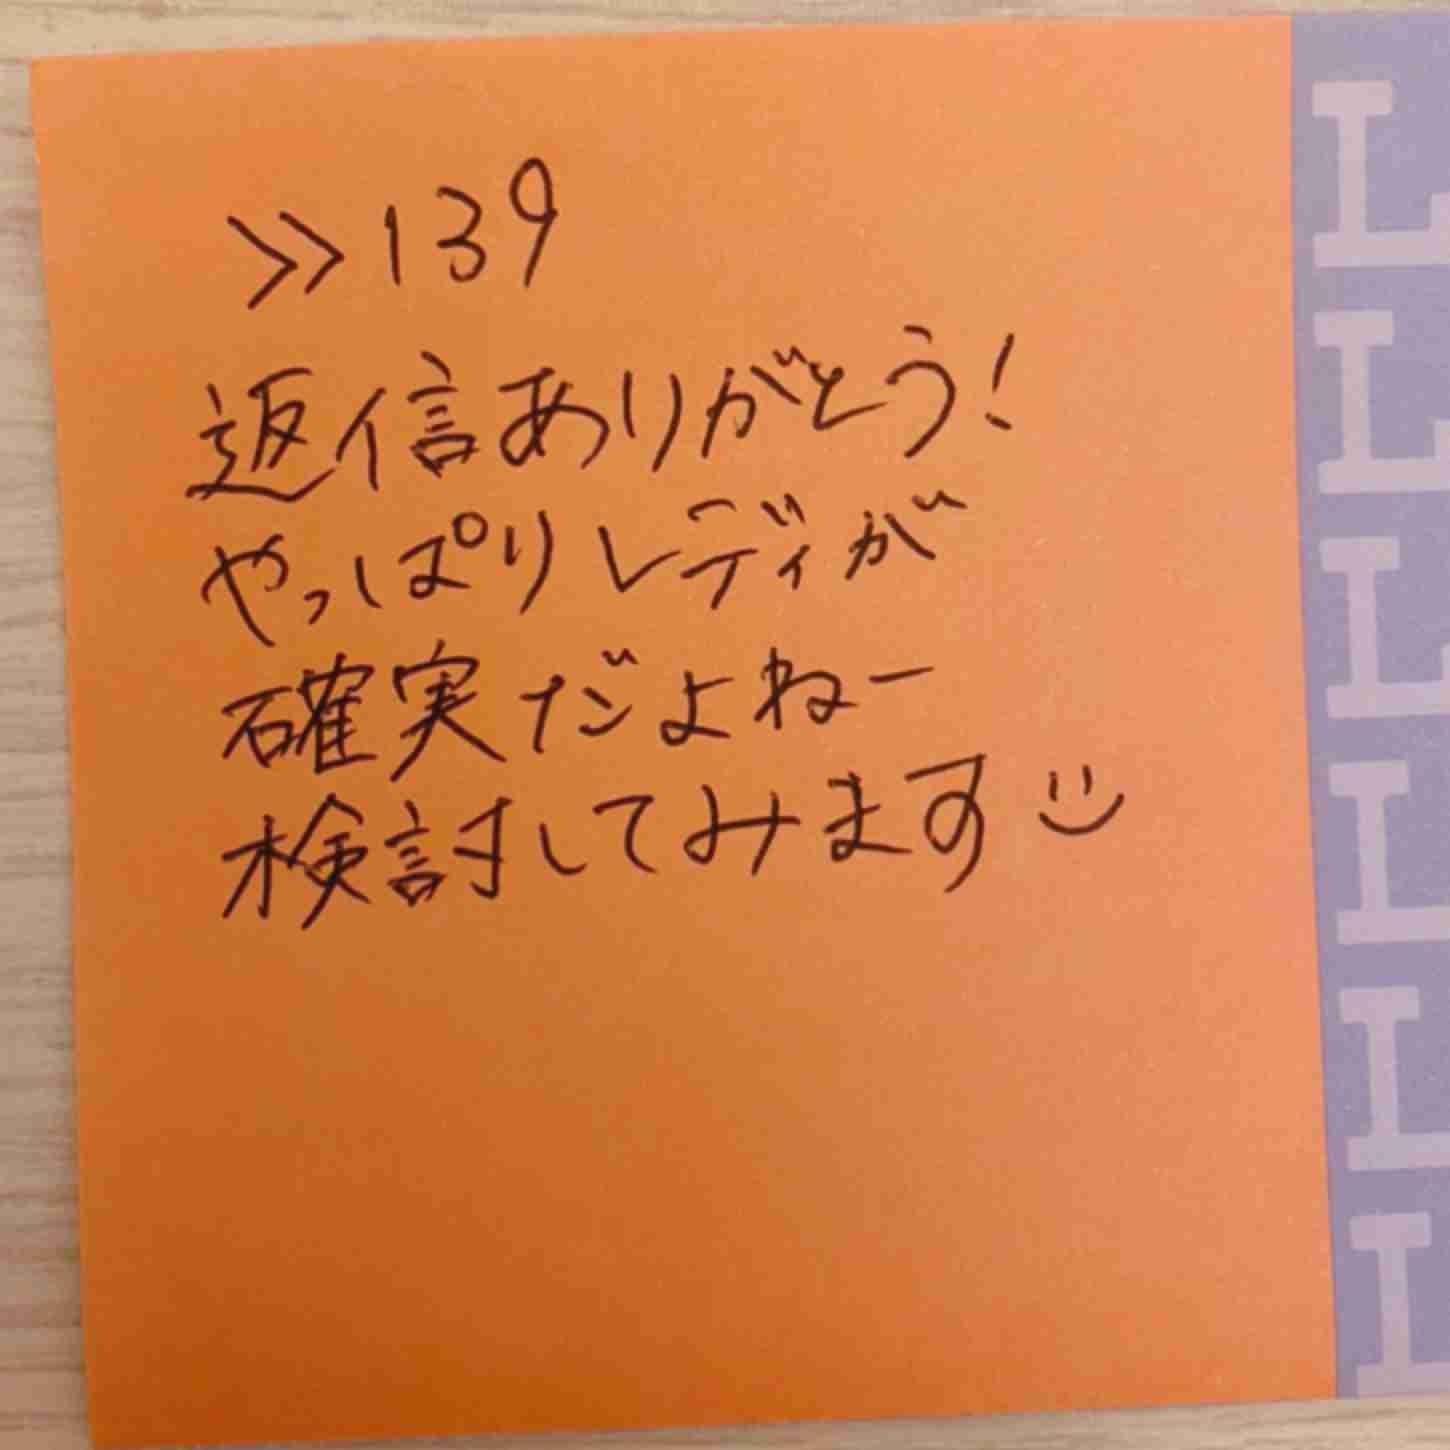 >>139
返信ありがとう!
やっぱりレディが
確実だよねー
検討してみます
L
L
L
L
L
L